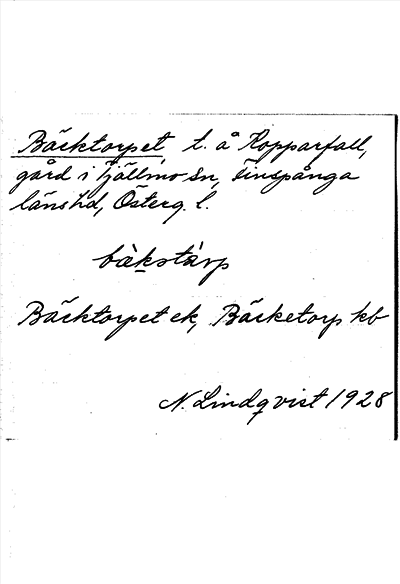 Bäcktorpet t. å Kopparfall,
gård i Tjällmo sn, Finspånga
länshd, Österg. l.
bàkstárp
Bäcktorpet ek, Bäcketorp kb
N. Lindqvist 1928